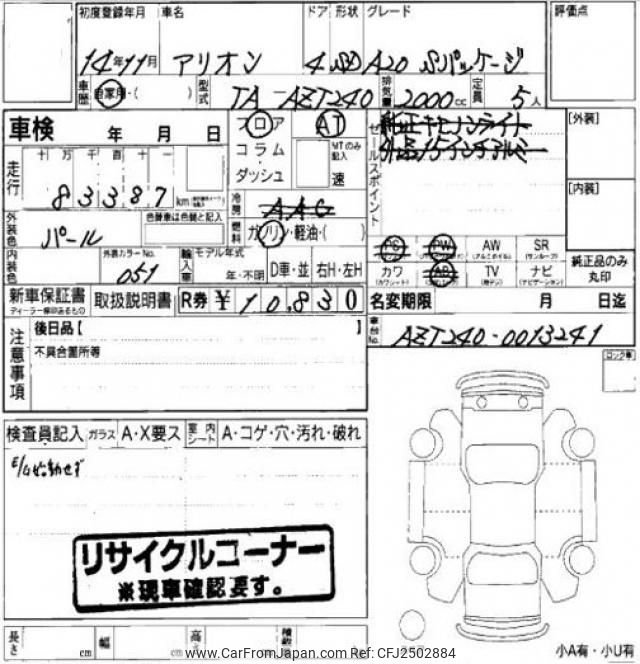 初度登録年月 車名 ドア 形状 グレード 評価点
14年11月 アリオン 4 SD A20 Sパッケージ
車歴 自家用・( ) 型式 TA-AZT240 排気量 2000cc 定員 5人
車検 年 月 日 フロア AT セールスポイント 純正キセノンライト [外装]
コラム MTのみ記入 社品15インチアルミ
走行 十 万 千 百 十 一 ダッシュ 速
83387 km 冷房 AAC [内装]
外装色 パール 色替車は色替と記入 燃料 ガソリン・軽油・( )
PS PW AW SR
(アルミホイル) (サンルーフ)
内装色 外装カラーNo. 051 輸入車 モデル年式 年・不明 D車・並 右H・左H カワ AB TV ナビ 純正品のみ丸印
(カワシート) (ナビゲーション)
新車保証書 取扱説明書 R券 ¥10,830 名変期限 月 日迄
ディーラー捺印あるもの
車台No. AZT240-0013241
注意事項 後日品【 】
不具合箇所等
ロック車
検査員記入 ガラス A・X要ス 室内シート A・コゲ・穴・汚れ・破れ
E/G始動せず
リサイクルコーナー
※現車確認要す。
長さ cm 幅 cm 高さ
www.CarFromJapan.com Ref:CFJ2502884
小A有・小U有